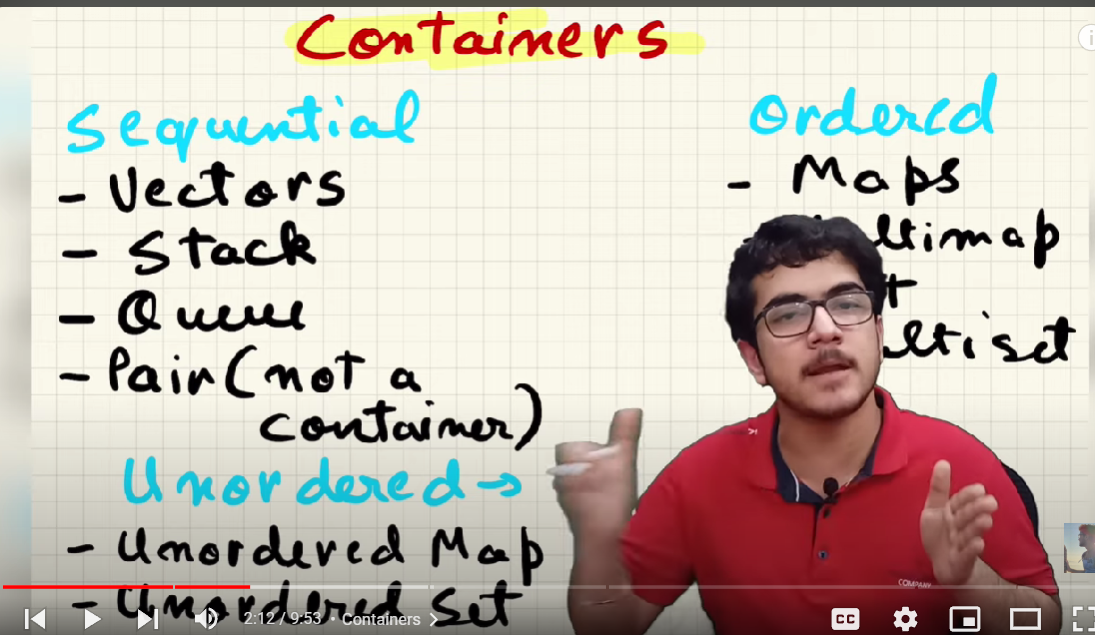 Containers
Sequential
- Vectors
- Stack
- Queue
- Pair (not a
container)
Unordered →
- Unordered Map
- Unordered Set
Ordered
- Maps
COMPANY
2:12 / 9:53 • Containers
CC